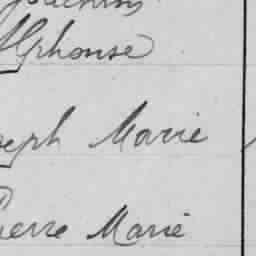 Alphonse
seph Marie
Pierre Marie